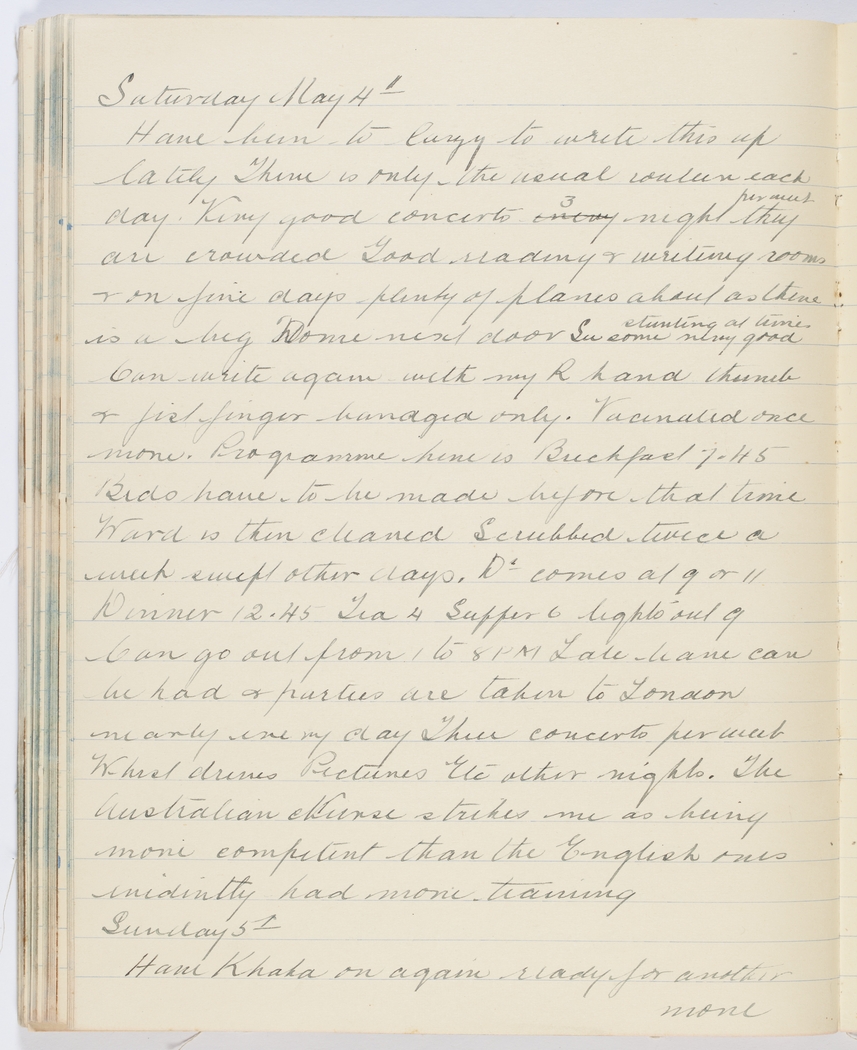 Saturday May 4th
Have been to lazy to write this up
lately There is only the usual routeen each
day. Very good concerts 3 every night per week they
are crowded Good reading & writing rooms
& on fine days plenty of planes about as there
is a big Drome next door See some stunting at times very good
Can write again with my R hand thumb
& fist finger bandged only. Vacinated once
more. Programme here is Breckfast 7.45
Beds have to be made before that time
Ward is then cleaned Scrubbed twice a
week swept other days. Dr comes at 9 or 11
Dinner 12.45 Tea 4 Supper 6 lights out 9
Can go out from 1 to 8 PM Late leave can
be had & parties are taken to London
nearly every day Three concerts per week
Whist drives Pictures Etc other nights. The
Australian Nurse strikes me as being
more competent than the English ones
evidintly had more training
Sunday 5th
Have Khaka on again ready for another
move